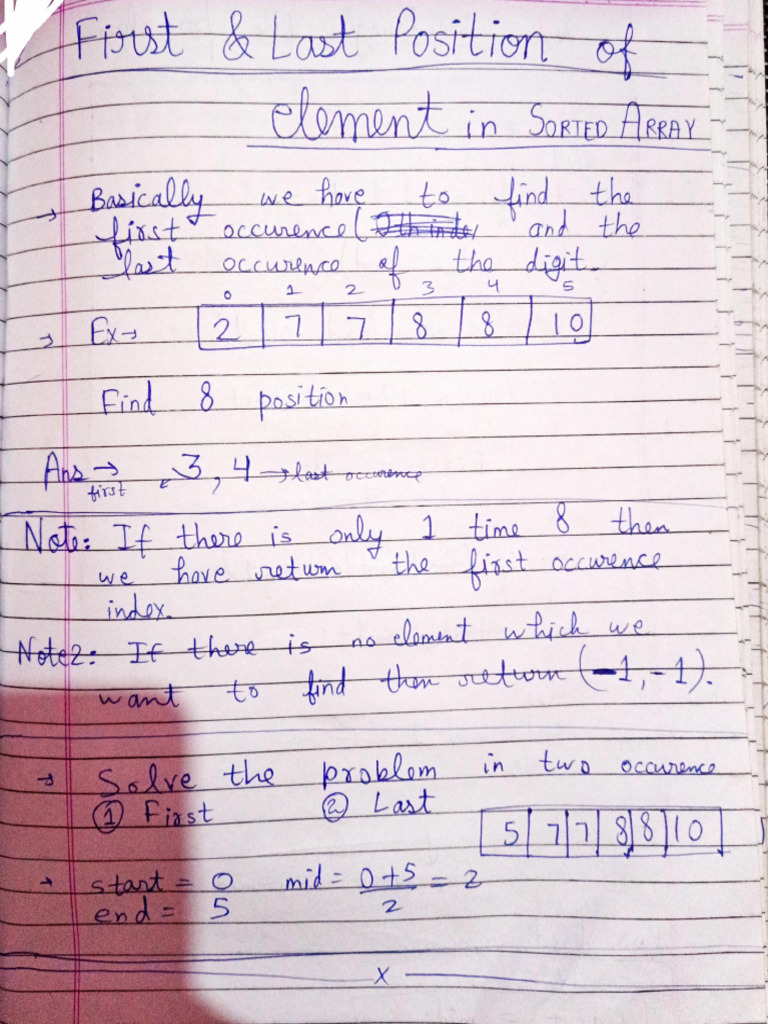 First & Last Position of
element in SORTED ARRAY
→ Basically we have to find the
first occurence( and the
last occurence of the digit.
0 1 2 3 4 5
→ Ex→ 2 7 7 8 8 10
Find 8 position
Ans → 3, 4 → last occurence
first
Note: If there is only 1 time 8 then
we have return the first occurence
index.
Note2: If there is no element which we
want to find then return (-1,-1).
→ Solve the problem in two occurence
① First ② Last
5 7 7 8 8 10
→ start = 0 mid = 0+5 = 2
end = 5 2
x